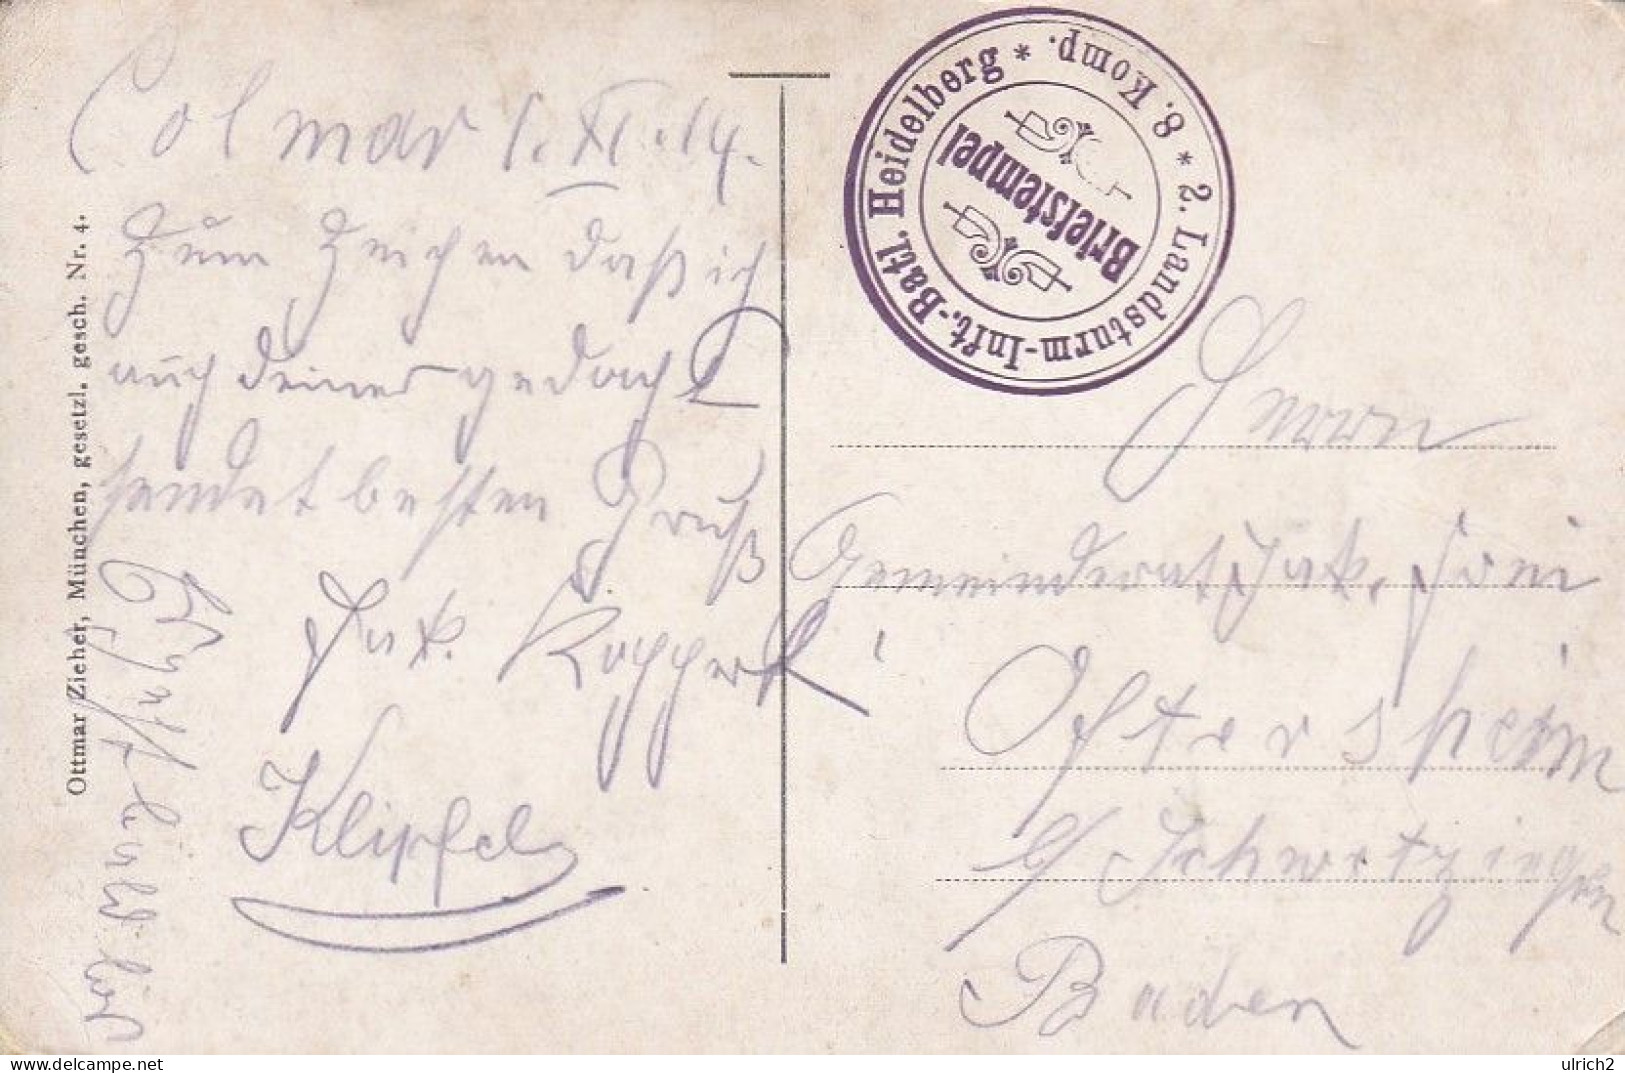 Colmar 1. XI. 14.
Zum Zeichen daß ich
auch deiner gedacht
sendet besten Gruß
Jak. Koppert
Klipfel
Ottmar Zieher, München, gesetzl. gesch. Nr. 4.
2. Landsturm-Inft.-Batl. Heidelberg * 8. Komp. *
Briefstempel
Herrn
Gemeinderat Jak. Frei
Oftersheim
b/ Schwetzingen
Baden
ulrich2